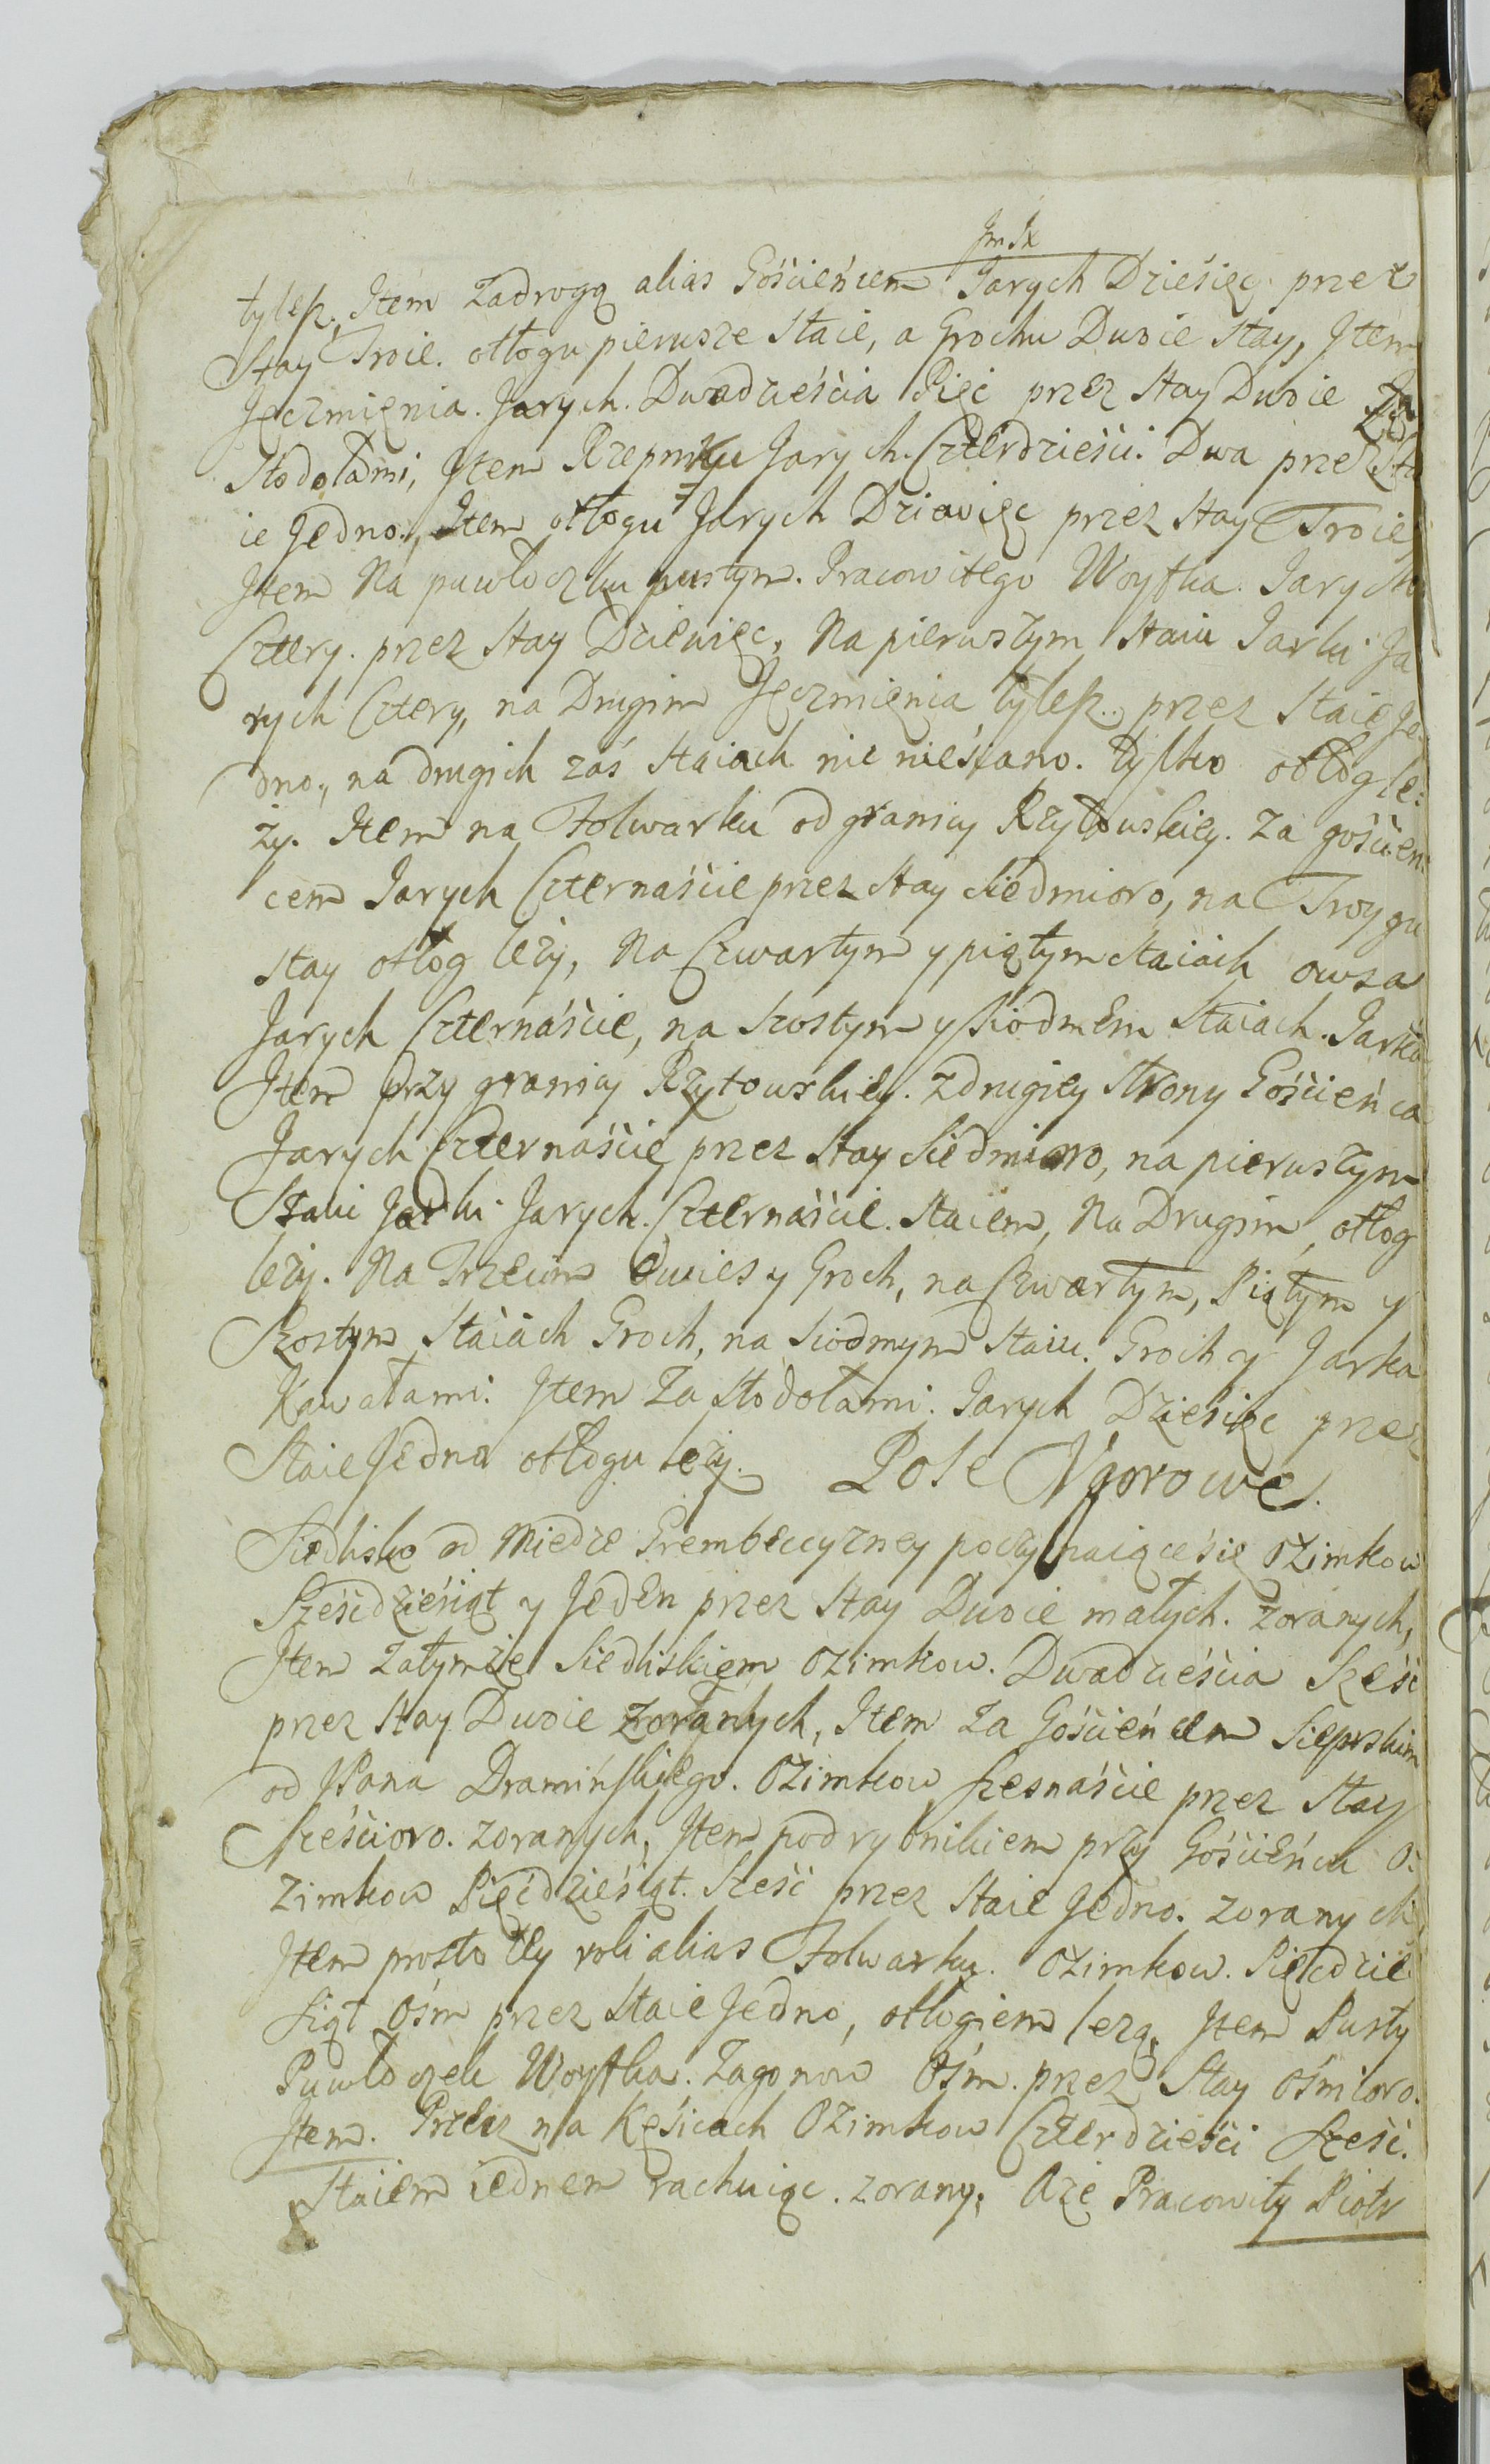 tylesz. Item Zadrogą alias Gościeńcem Jarych Dziesięc przez
Stay Troie. otłogu pierwsze Staie, a Grochu Dwoie Stay, Item
Jęczmięnia. Jarych. Dwadzieścia Pięc przez Stay Dwoie Za
Stodołami, Item Rzepniku Jarych. Czterdzieści. Dwa przez Sta
ie Jedno., Item otłogu Jarych Dziewięc przez Stay Troie,
Item Na pawłoczku pustym. Pracowitego Woytka. Jarych
Cztery. przez Stay Dziewięc, Na pierwszym Staiu Jarki Ja
rych Cztery, na Drugim Jęczmięnia tylesz. przez Staie Je
dno., na drugich zaś Staiach nic niesiano. tylko otłog le:
ży. Item na Folwarku od granicy Rżytowskiey. Za gościen:
cem Jarych Czternaście przez Stay Siedmioro, na Troygu
Stay otłog leży, Na Czwartym y piątym Staiach owsa
Jarych Czternaście, na Szostym y Siodmem Staiach. Jarka
Item przy granicy Rżytowskiey. zdrugiey Strony Gościeńca
Jarych Czternaście przez Stay Siedmioro, na pierwszym
Staiu Jarki Jarych. Czternaście. Staiem, Na Drugim, otłog
leży. Na Trzecim Owies y Groch, na Czwartym, Piątym y
Szostym Staiach Groch, na Siodmym Staiu. Groch y Jarka
Kawałami: Item Za Stodołami. Jarych Dziesięc przez
Staie Jedno otłogu leży. Pole Vgorowe.
Siedlisko od Miedze Grembeccyzney poczynaiącesię Ozimkow
Sześćdzieśiąt y Jeden przez Stay Dwoie małych. zoranych,
Item Zatymże Siedliskiem Ozimkow. Dwadzieścia Sześć
przez Stay Dwoie Zoranych, Item Za Gościeńcem Sieprskim
od JPana Dramińskiego. Ozimkow Szesnaście przez Stay
Sześcioro. zoranych, Item pod rybnikiem przy Gościeńcu O:
zimkow Pięćdzieśiąt. Sześć przez Staie Jedno. zoranych,
Item prosto tey roli alias Folwarku. Ozimkow. Pięćdzie
siąt Ośm przez Staie Jedno, otłogiem leżą. Item Pusty
Pawłoczek Woytka. Zagonow Ośm. przez Stay Ośmioro.
Item. Przecz na Kęsicach Ozimkow Czterdzieści Sześć.
Staiem iednem rachuiąc. zorany. Oże Pracowity Piotr